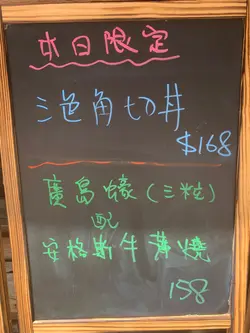 本日限定
三色角切丼
$168
廣島蠔(三粒)
配
安格斯牛薄燒
158